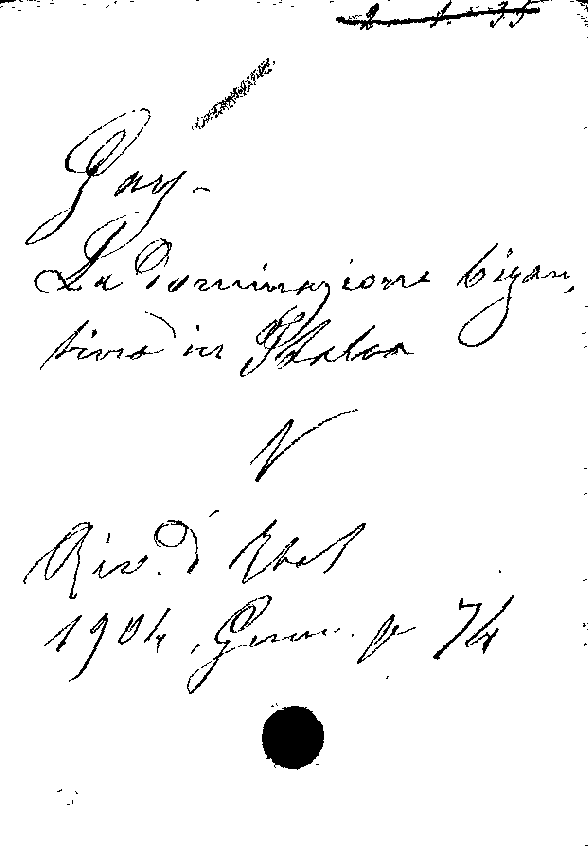 Gay -
La Dominazione bizan,
tina in Italia
V
Riv. d' Ital
1904, Genn. p 74